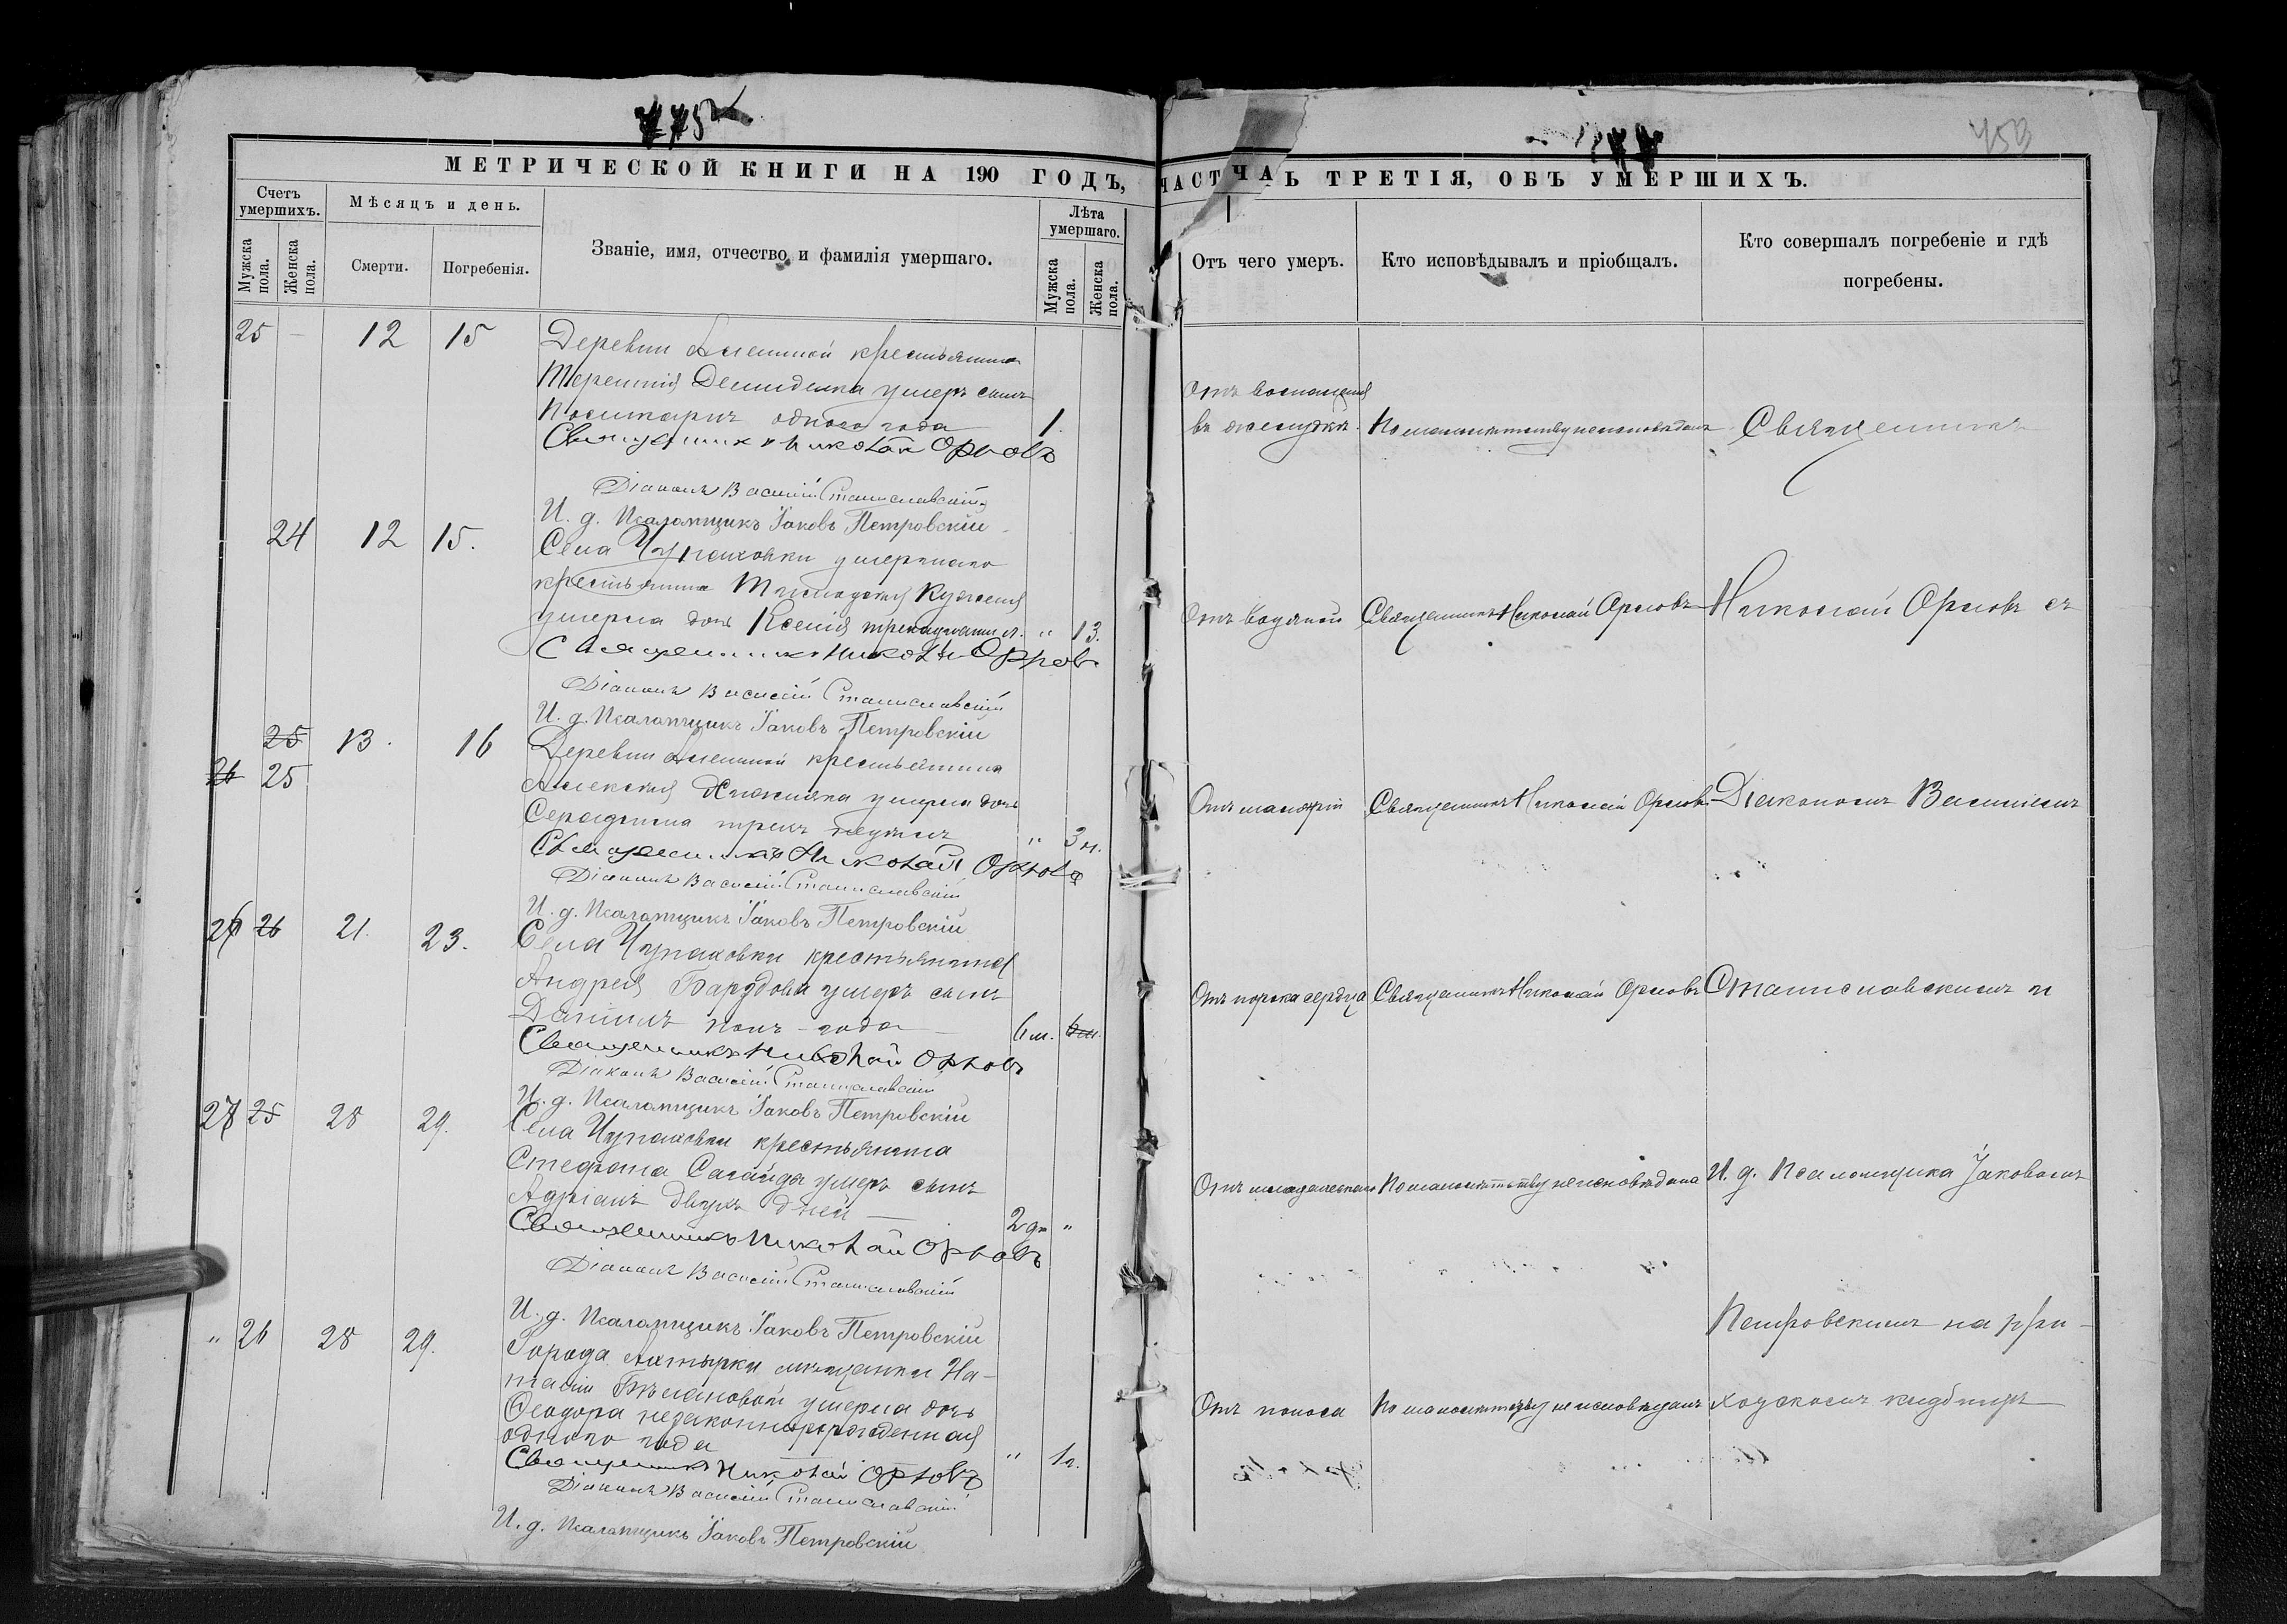 775
453
МЕТРИЧЕСКОЙ КНИГИ НА 190 ГОДЪ,
ЧАСТЬ ТРЕТІЯ, ОБЪ УМЕРШИХЪ.
Счетъ умершихъ.
Мужска пола.
Женска пола.
Мѣсяцъ и день.
Смерти.
Погребенія.
Званіе, имя, отчество и фамилія умершаго.
Лѣта умершаго.
Мужска пола.
Женска пола.
Отъ чего умеръ.
Кто исповѣдывалъ и пріобщалъ.
Кто совершалъ погребеніе и гдѣ
погребены.
25 — 12 15
Деревни крестьянина
Терентія Демиденка умеръ сынъ
одного года 1.
Священникъ Николай Орловъ
Діаконъ Василій Станиславскій
И. д. Псаломщикъ Іаковъ Петровскій
Отъ воспаленія
въ желудкѣ.
По малолѣтству неисповѣданъ
Священникъ
24 12 15.
Села Чупаховки умершаго
крестьянина
умерла дочь Ксенія тринадцати л. " 13.
Священникъ Николай Орловъ
Діаконъ Василій Станиславскій
И. д. Псаломщикъ Іаковъ Петровскій
Отъ водяной
Священникъ Николай Орловъ
Николай Орловъ съ
25 13. 16
26 25
Деревни крестьянина
Алексея умерла дочь
трехъ недѣль " 3 н.
Священникъ Николай Орловъ
Діаконъ Василій Станиславскій
И. д. Псаломщикъ Іаковъ Петровскій
Священникъ Николай Орловъ
Діакономъ Василіемъ
26 26 21. 23.
Села Чупаховки крестьянина
Андрея умеръ сынъ
Даніилъ полъ-года 6 м. 6 м.
Священникъ Николай Орловъ
Діаконъ Василій Станиславскій
И. д. Псаломщикъ Іаковъ Петровскій
Отъ порока сердца
Священникъ Николай Орловъ
Станиславскимъ и
27 25 28 29.
Села Чупаховки крестьянина
Стефана Сагайда умеръ сынъ
Адріанъ двухъ дней 2 дн "
Священникъ Николай Орловъ
Діаконъ Василій Станиславскій
И. д. Псаломщикъ Іаковъ Петровскій
По малолѣтству неисповѣдана
И. д. Псаломщика Іаковомъ
" 26 28 29.
Города Ахтырки мѣщанки На-
таліи умерла дочь
Ѳеодора незаконнорожденная
одного года " 1 г.
Священникъ Николай Орловъ
Діаконъ Василій Станиславскій
И. д. Псаломщикъ Іаковъ Петровскій
Отъ поноса
По малолѣтству неисповѣданъ
Петровскимъ на при-
ходскомъ кладбищѣ